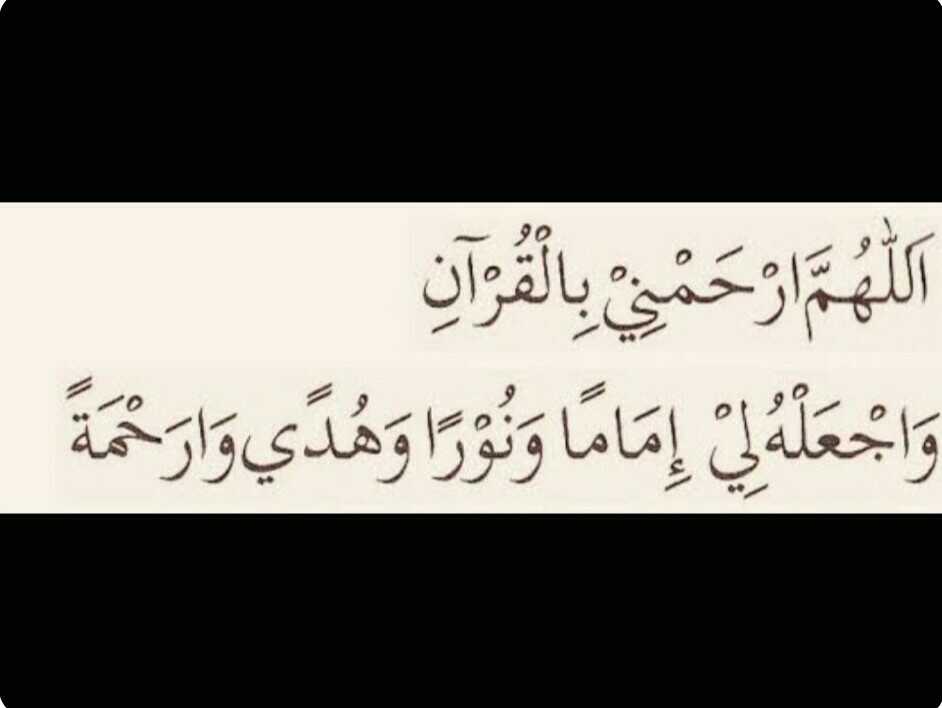 اَللّٰهُمَّ ارْحَمْنِيْ بِالْقُرْآنِ
وَاجْعَلْهُ لِيْ إِمَامًا وَنُوْرًا وَهُدًي وَارَحْمَةً